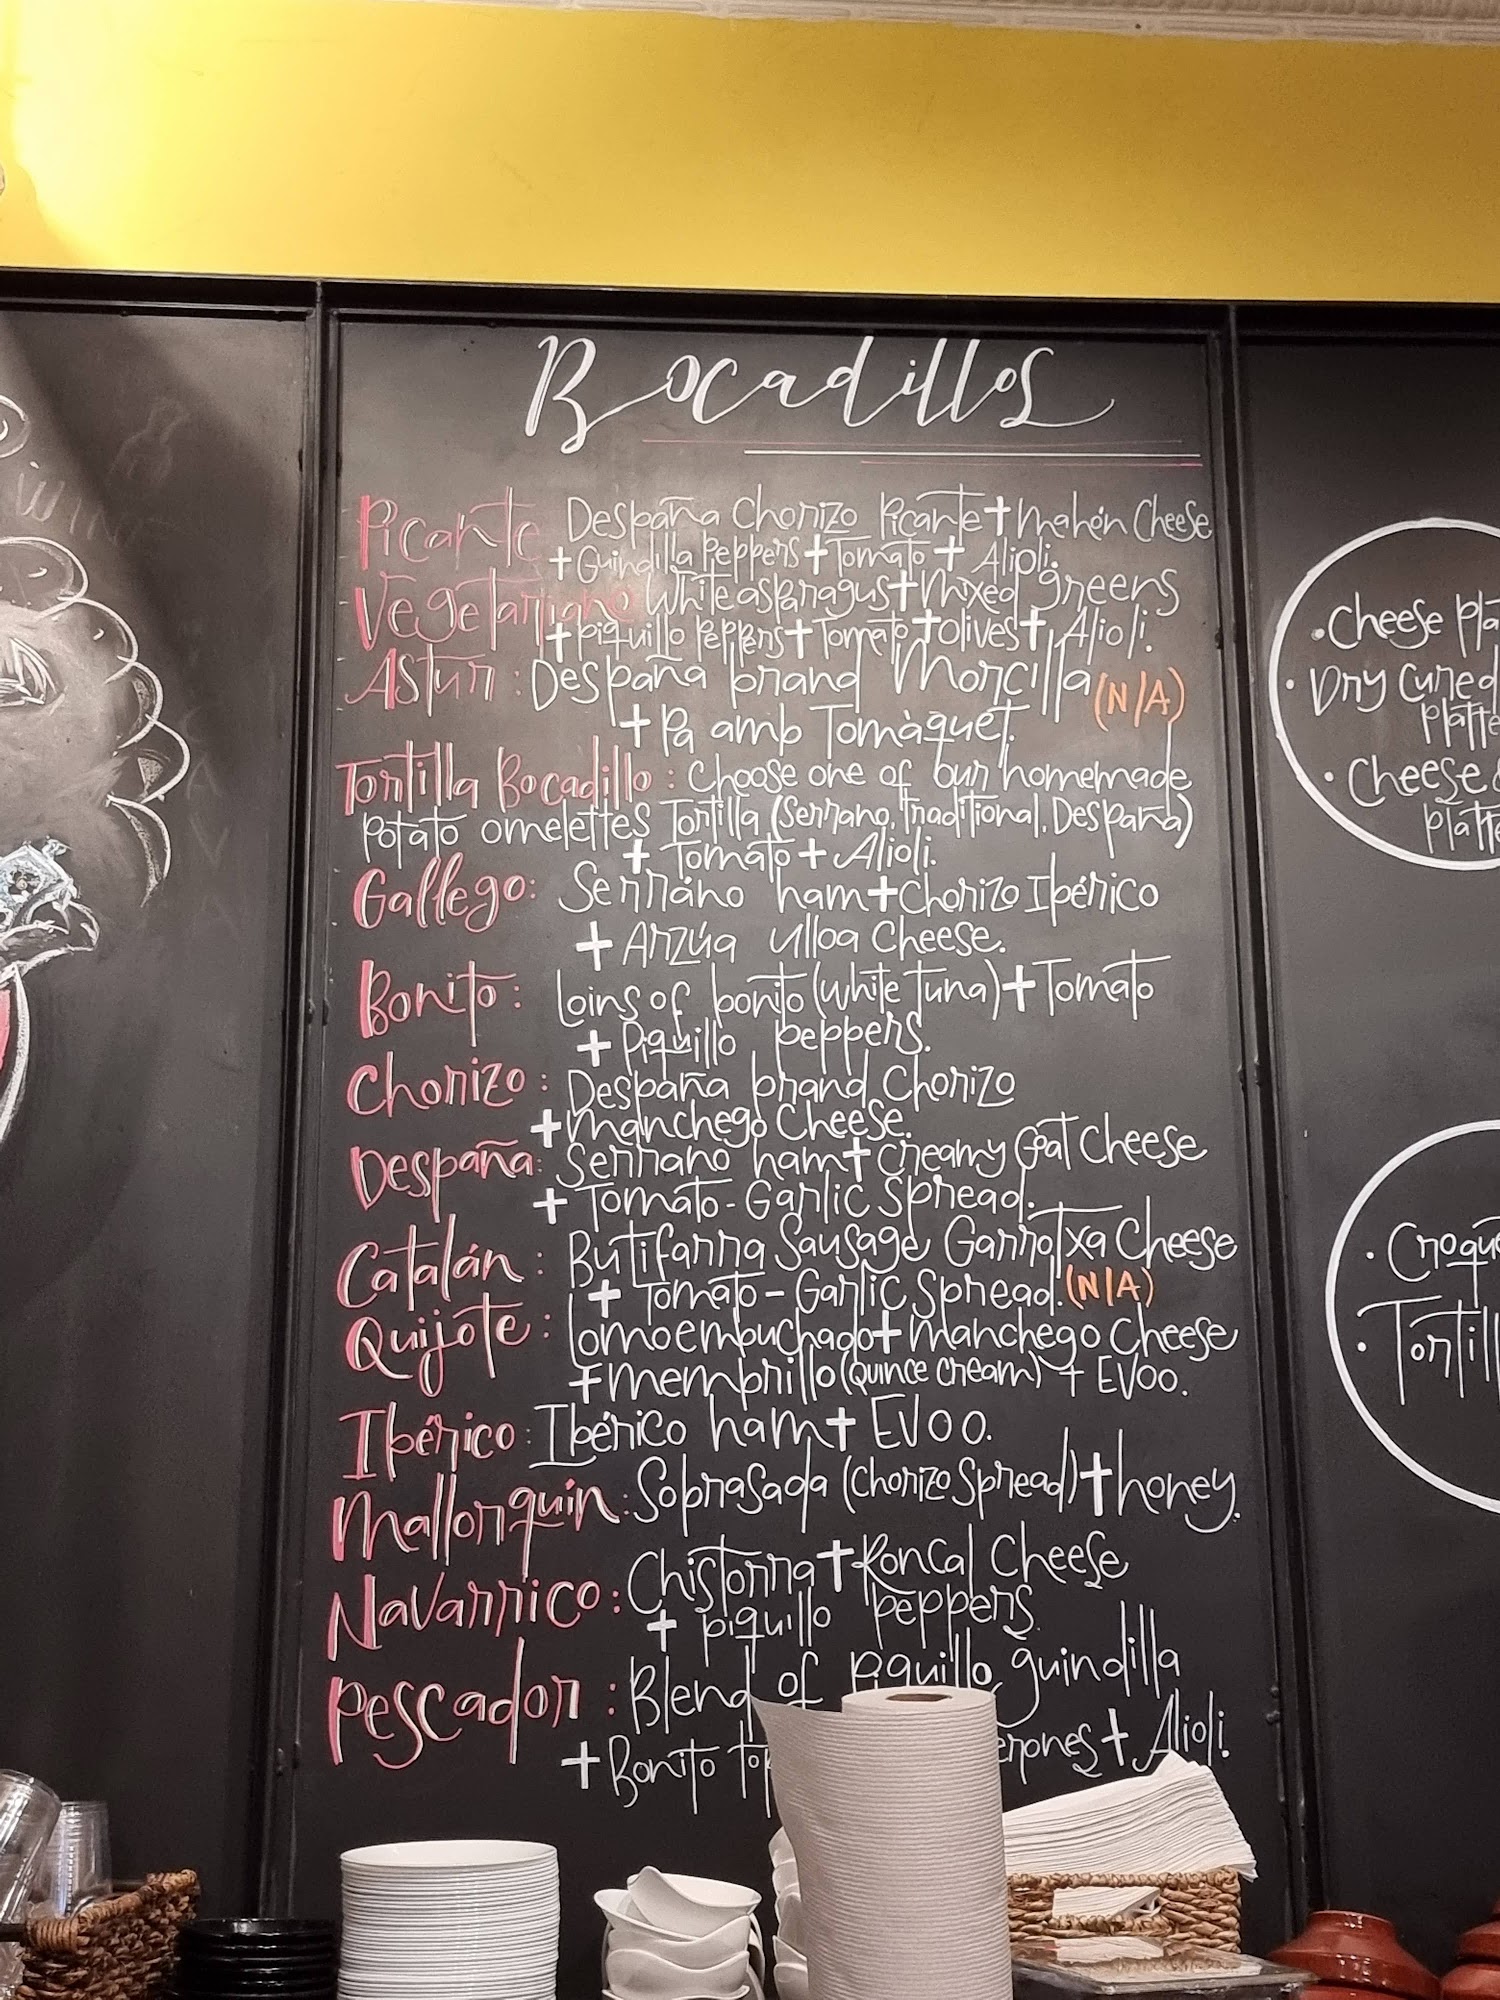 Bocadillos
Picante Despaña Chorizo Picante + Mahón Cheese
+ Guindilla Peppers + Tomato + Alioli.
Vegetariano White asparagus + Mixed greens
+ piquillo Peppers + Tomato + olives + Alioli.
Astur: Despaña brand Morcilla (N/A)
+ Pa amb Tomàquet.
Tortilla Bocadillo: Choose one of our homemade
Potato omelettes Tortilla (Serrano, Traditional, Despaña)
+ Tomato + Alioli.
Gallego: Serrano ham + Chorizo Ibérico
+ Arzúa Ulloa Cheese.
Bonito: Loins of bonito (White Tuna) + Tomato
+ Piquillo peppers.
Chorizo: Despaña brand Chorizo
+ Manchego Cheese.
Despaña: Serrano ham + Creamy Goat Cheese
+ Tomato - Garlic Spread.
Catalán: Butifarra Sausage Garrotxa Cheese
+ Tomato - Garlic Spread. (N/A)
Quijote: Lomo embuchado + Manchego Cheese
+ Membrillo (Quince Cream) + EVOO.
Ibérico: Ibérico ham + EVOO.
Mallorquín: Sobrasada (Chorizo Spread) + honey.
Navarrico: Chistorra + Roncal Cheese
+ piquillo peppers.
Pescador: Blend of piquillo guindilla
+ Bonito + Alioli.
• Cheese
• Dry Cured
• Cheese